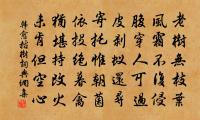 老樹無枝葉
風霜不復侵
腹穿人可過
皮剥蟻還尋
寄托惟朝菌
依投絕暮禽
猶堪持改火
未肯但空心
韓愈枯樹詞典網集